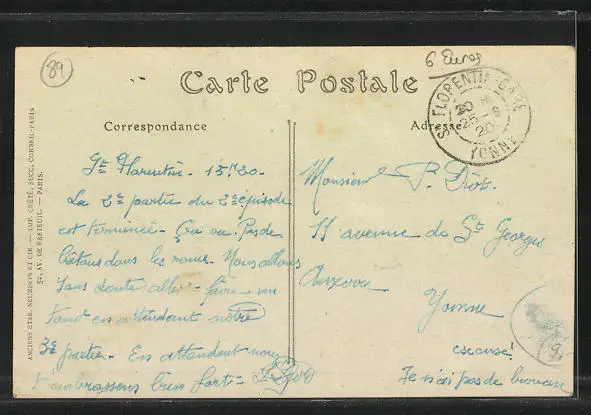 89
6 Euros
Carte Postale
ST FLORENTIN-GARE
YONNE
20
25 - 8
20
Correspondance
Adresse
ANCIENS ETAB. NEURDEIN ET CIE. — IMP. CRÉTÉ, SUCC, CORBEIL-PARIS
52, AV. DE BRETEUIL. — PARIS.
St Florentin - 15 20.
La 2e partie du 2e épisode
est terminée. Ça va. Pas de
bâtons dans les roues. Nous allons
sans doute aller faire un
tour en attendant notre
3e partie. En attendant nous
t'embrassons bien fort =
Monsieur P. Diot.
11 avenue de St Georges
Auxerre
Yonne
excuse,
Je n'ai pas de